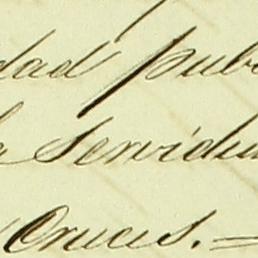 dad pub
a Servidu
Cruces.=